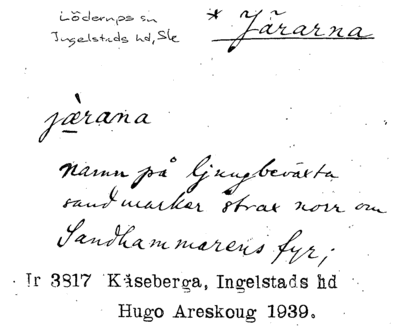 Löderups sn
Ingelstads hd, Sk
* Järarna
jærana
namn på ljungbeväxta
sandmarker strax norr om
Sandhammarens fyr;
Ir 3817 Kåseberga, Ingelstads hd
Hugo Areskoug 1939.